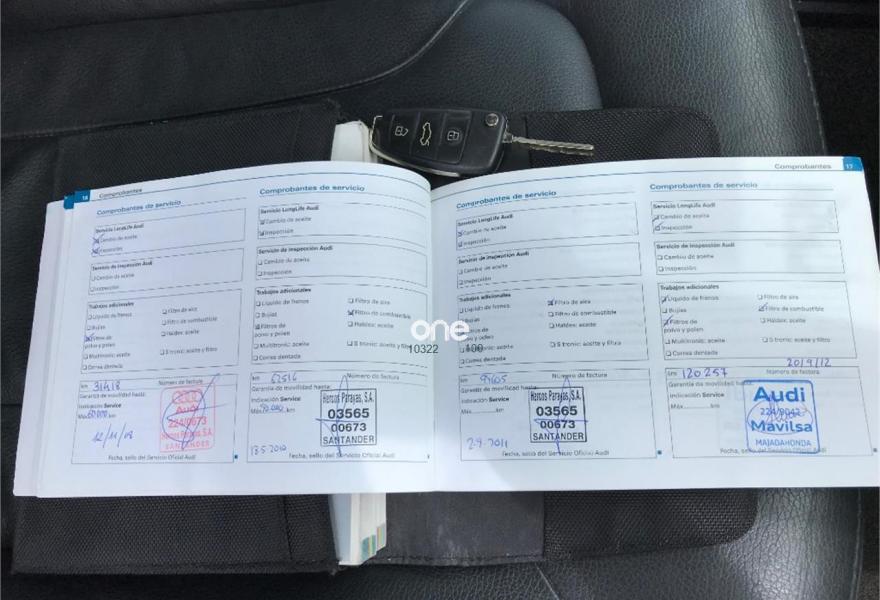 16 Comprobantes
Comprobantes de servicio
Servicio LongLife Audi
Cambio de aceite
Inspección
Servicio de Inspección Audi
Cambio de aceite
Inspección
Trabajos adicionales
Líquido de frenos
Filtro de aire
Bujías
Filtro de combustible
Filtros de
polvo y polen
Haldex: aceite
Multitronic: aceite
S tronic: aceite y filtro
Correa dentada
km 31418 Número de factura
Garantía de movilidad hasta:
Indicación Service
Máx. 60.000 km
Audi
224/0673
Hercos Parayas, S.A.
SANTANDER
12/11/08
Fecha, sello del Servicio Oficial Audi
Comprobantes de servicio
Servicio LongLife Audi
Cambio de aceite
Inspección
Servicio de Inspección Audi
Cambio de aceite
Inspección
Trabajos adicionales
Líquido de frenos
Filtro de aire
Bujías
Filtro de combustible
Filtros de
polvo y polen
Haldex: aceite
Multitronic: aceite
S tronic: aceite y filtro
Correa dentada
km 62516 Número de factura
Garantía de movilidad hasta:
Indicación Service
Máx. km
Hercos Parayas, S.A.
03565
00673
SANTANDER
13-5-2010
Fecha, sello del Servicio Oficial Audi
one
10322 100
Comprobantes 17
Comprobantes de servicio
Servicio LongLife Audi
Cambio de aceite
Inspección
Servicio de Inspección Audi
Cambio de aceite
Inspección
Trabajos adicionales
Líquido de frenos
Filtro de aire
Bujías
Filtro de combustible
Filtros de
polvo y polen
Haldex: aceite
Multitronic: aceite
S tronic: aceite y filtro
Correa dentada
km Número de factura
Garantía de movilidad hasta:
Indicación Service
Máx. km
Hercos Parayas, S.A.
03565
00673
SANTANDER
2-9-2011
Fecha, sello del Servicio Oficial Audi
Comprobantes de servicio
Servicio LongLife Audi
Cambio de aceite
Inspección
Servicio de Inspección Audi
Cambio de aceite
Inspección
Trabajos adicionales
Líquido de frenos
Filtro de aire
Bujías
Filtro de combustible
Filtros de
polvo y polen
Haldex: aceite
Multitronic: aceite
S tronic: aceite y filtro
Correa dentada
20/9/12
km 120257 Número de factura
Garantía de movilidad hasta:
Indicación Service
Máx. km
Audi
224/9042
Mavilsa
MAJADAHONDA
Fecha, sello del Servicio Oficial Audi